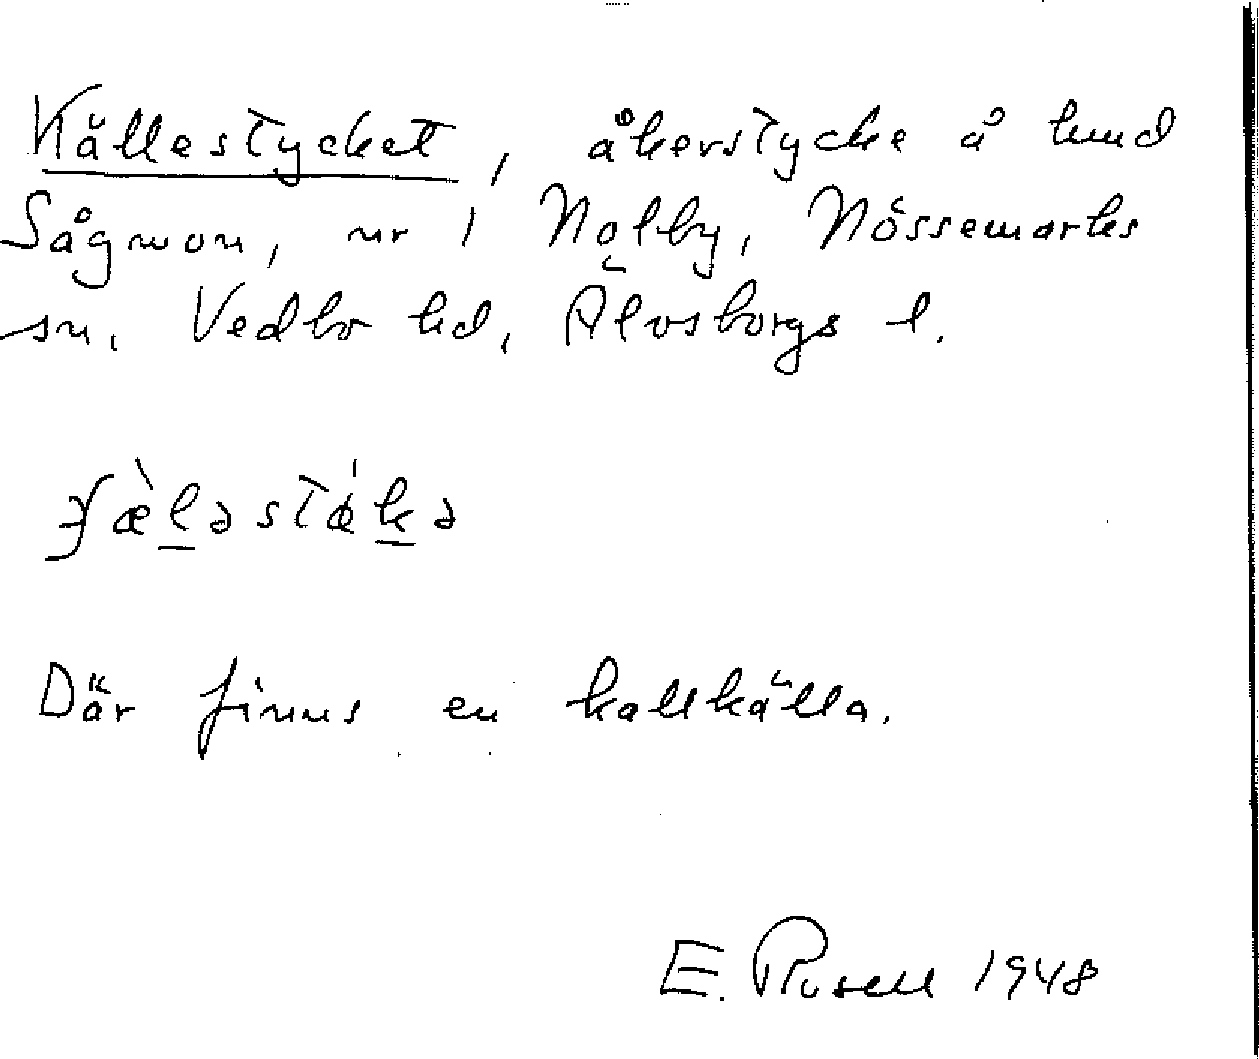 Källestycket, åkerstycke å hmd
Sågmon, nr 1 Nolby, Nössemarks
sn. Vedbo hd, Älvsborgs l.
Där finns en kallkälla.
E. Rosell 1948